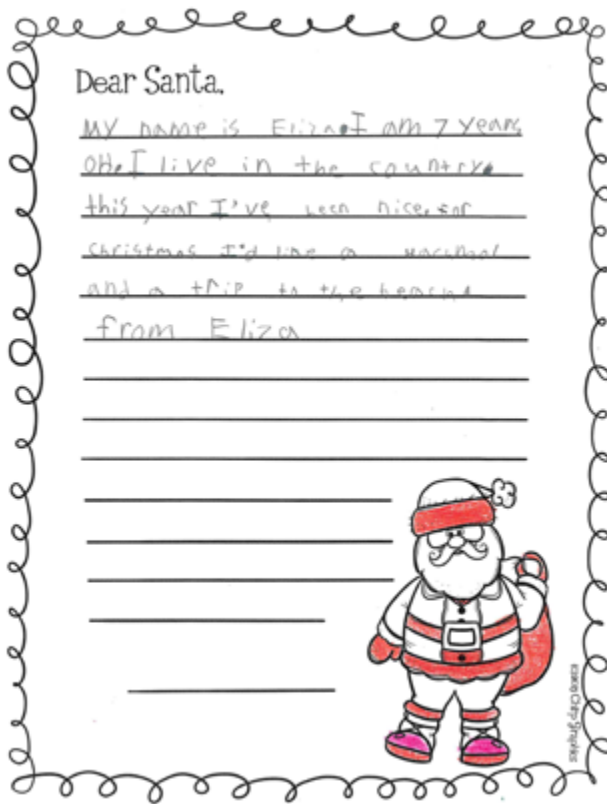 Dear Santa,
My name is Eliza. I am 7 years
old. I live in the country.
this year I've been nice. For
christmas I'd like a
and a trip to the beach
from Eliza
Graphics